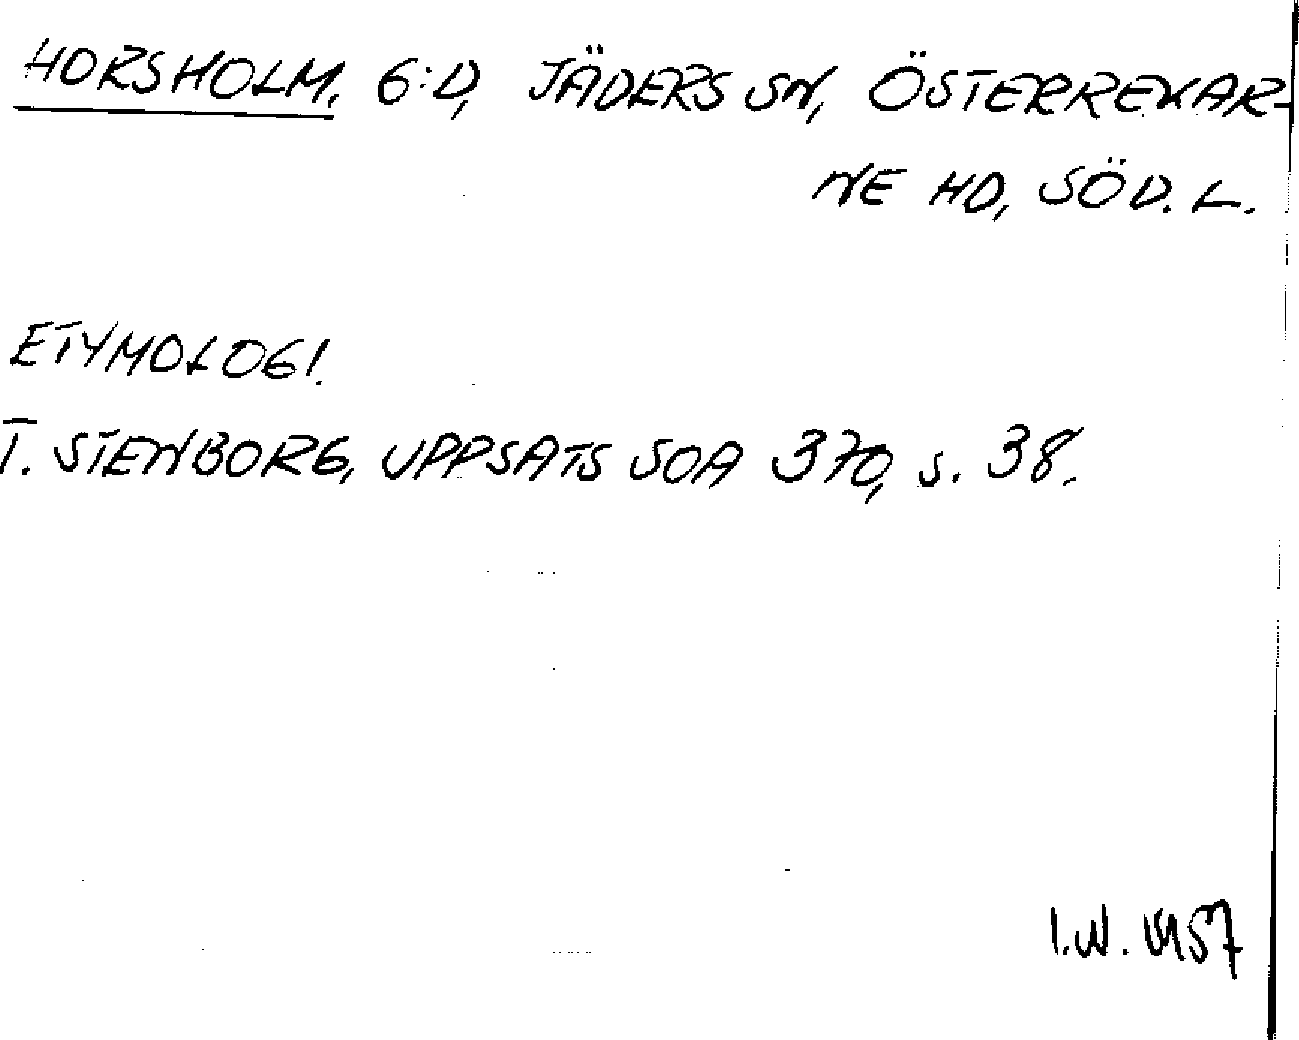 HORSHOLM. G:D, JÄDERS SN, ÖSTERREKAR-
NE HD, SÖD. L.
ETYMOLOGI.
T. STENBORG, UPPSATS SOA 370, s. 38.
I.W. 1957